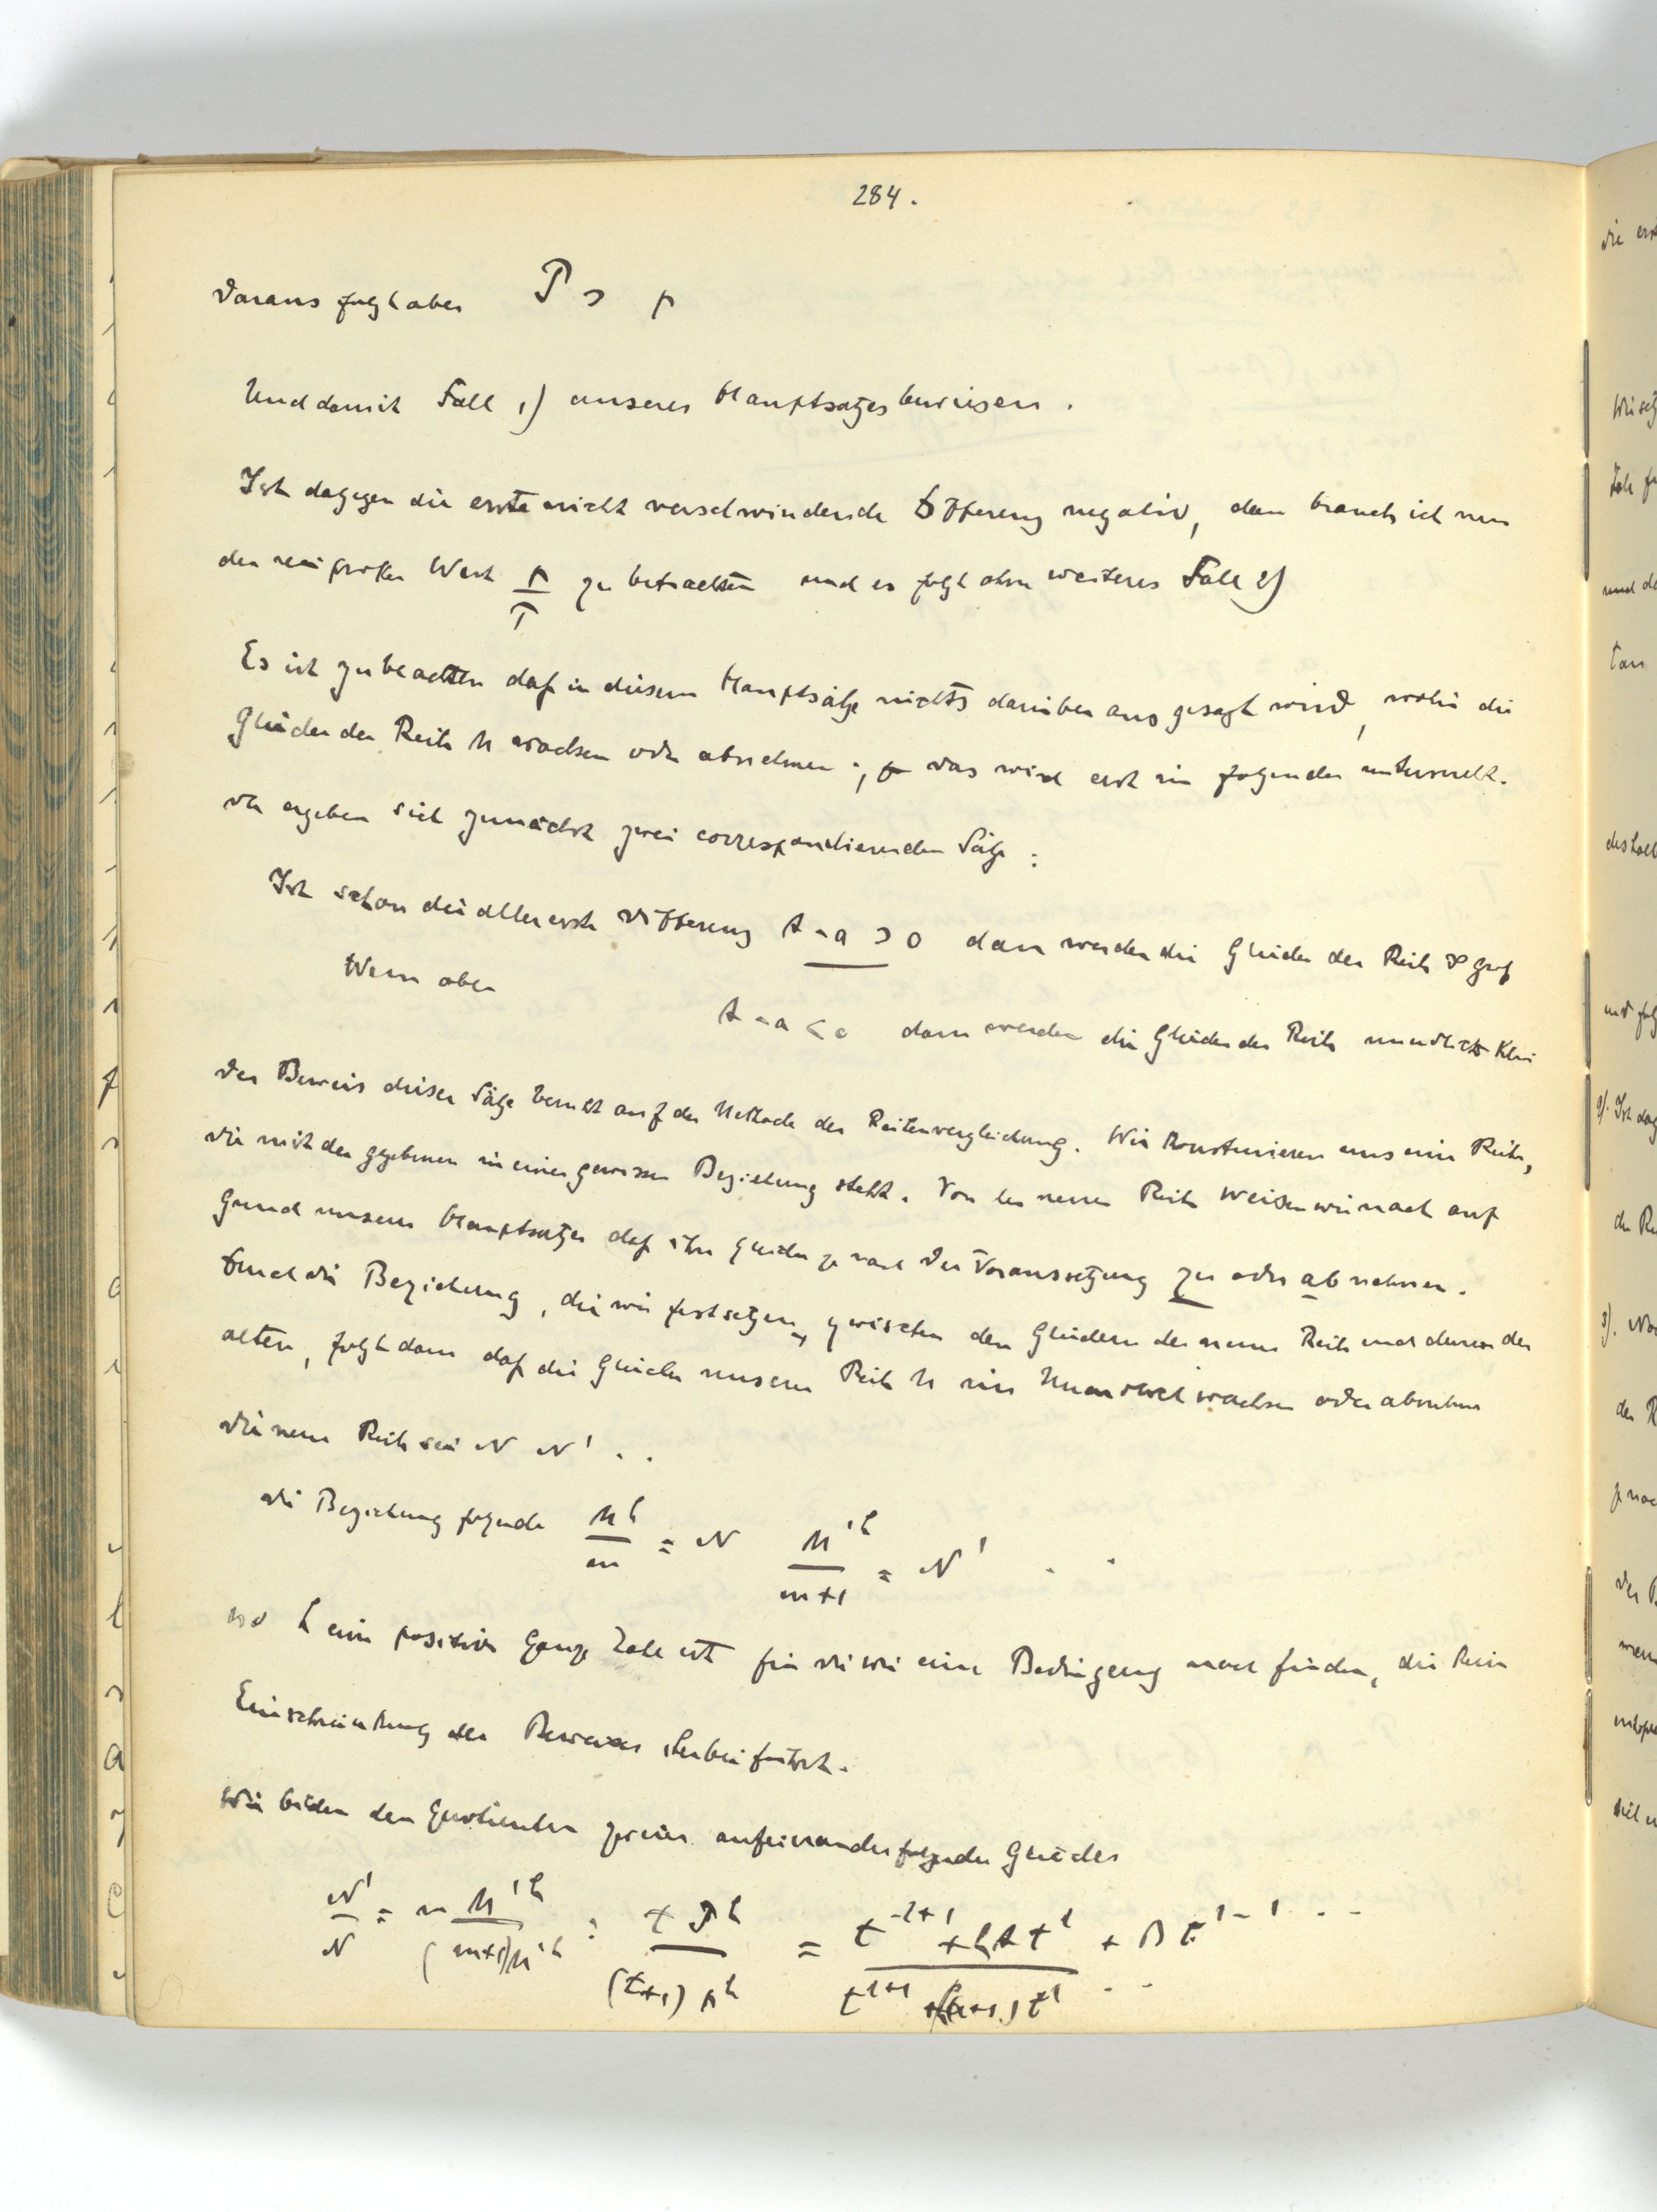 284.
Daraus folgt aber P > p
Und damit Fall 1) unseres Hauptsatzes bewiesen.
Ist dagegen die erste nicht verschwindende Differenz negativ, dann brauch ich nur
den reciproken Wert p/P zu betrachten und es folgt ohne weiteres Fall 2)
Es ist zu beachten daß in diesem Hauptsatze nichts darüber ausgesagt wird, wohin die
Glieder der Reihe M wachsen oder abnehmen; das wird erst im folgenden untersucht.
Da ergeben sich zunächst zwei correspondierenden Sätze:
Ist schon die allererste Differenz A - a > 0 dann werden die Glieder der Reihe ∞ groß
Wenn aber
A - a < 0 dann werden die Glieder der Reihe unendlich klein
Der Beweis dieser Sätze beruht auf der Methode der Reihenvergleichung. Wir konstruieren uns eine Reihe,
die mit der gegebenen in einer gewissen Beziehung steht. Von der neuen Reihe weisen wir nach auf
Grund unseres Hauptsatzes daß ihre Glieder je nach der Voraussetzung zu oder abnehmen.
Durch die Beziehung, die wir festsetzen, zwischen den Gliedern der neuen Reihe und denen der
alten, folgt dann daß die Glieder unserer Reihe M ins Unendliche wachsen oder abnehmen
Die neue Reihe sei N N' . .
Die Beziehung folgende M^h/m = N M'^h/(m+1) = N' . .
wo h eine positive ganze Zahl ist für die wir eine Bedingung noch finden, die keine
Einschränkung des Beweises herbeiführt.
Wir bilden den Quotienten zweier aufeinanderfolgender Glieder
N'/N = m M'^h/(m+1)M^h : t P^h/(t+1) p^h = t^λ+1 + hA t^λ + B t^λ-1 . . -
t^λ+1 t^λ . . -